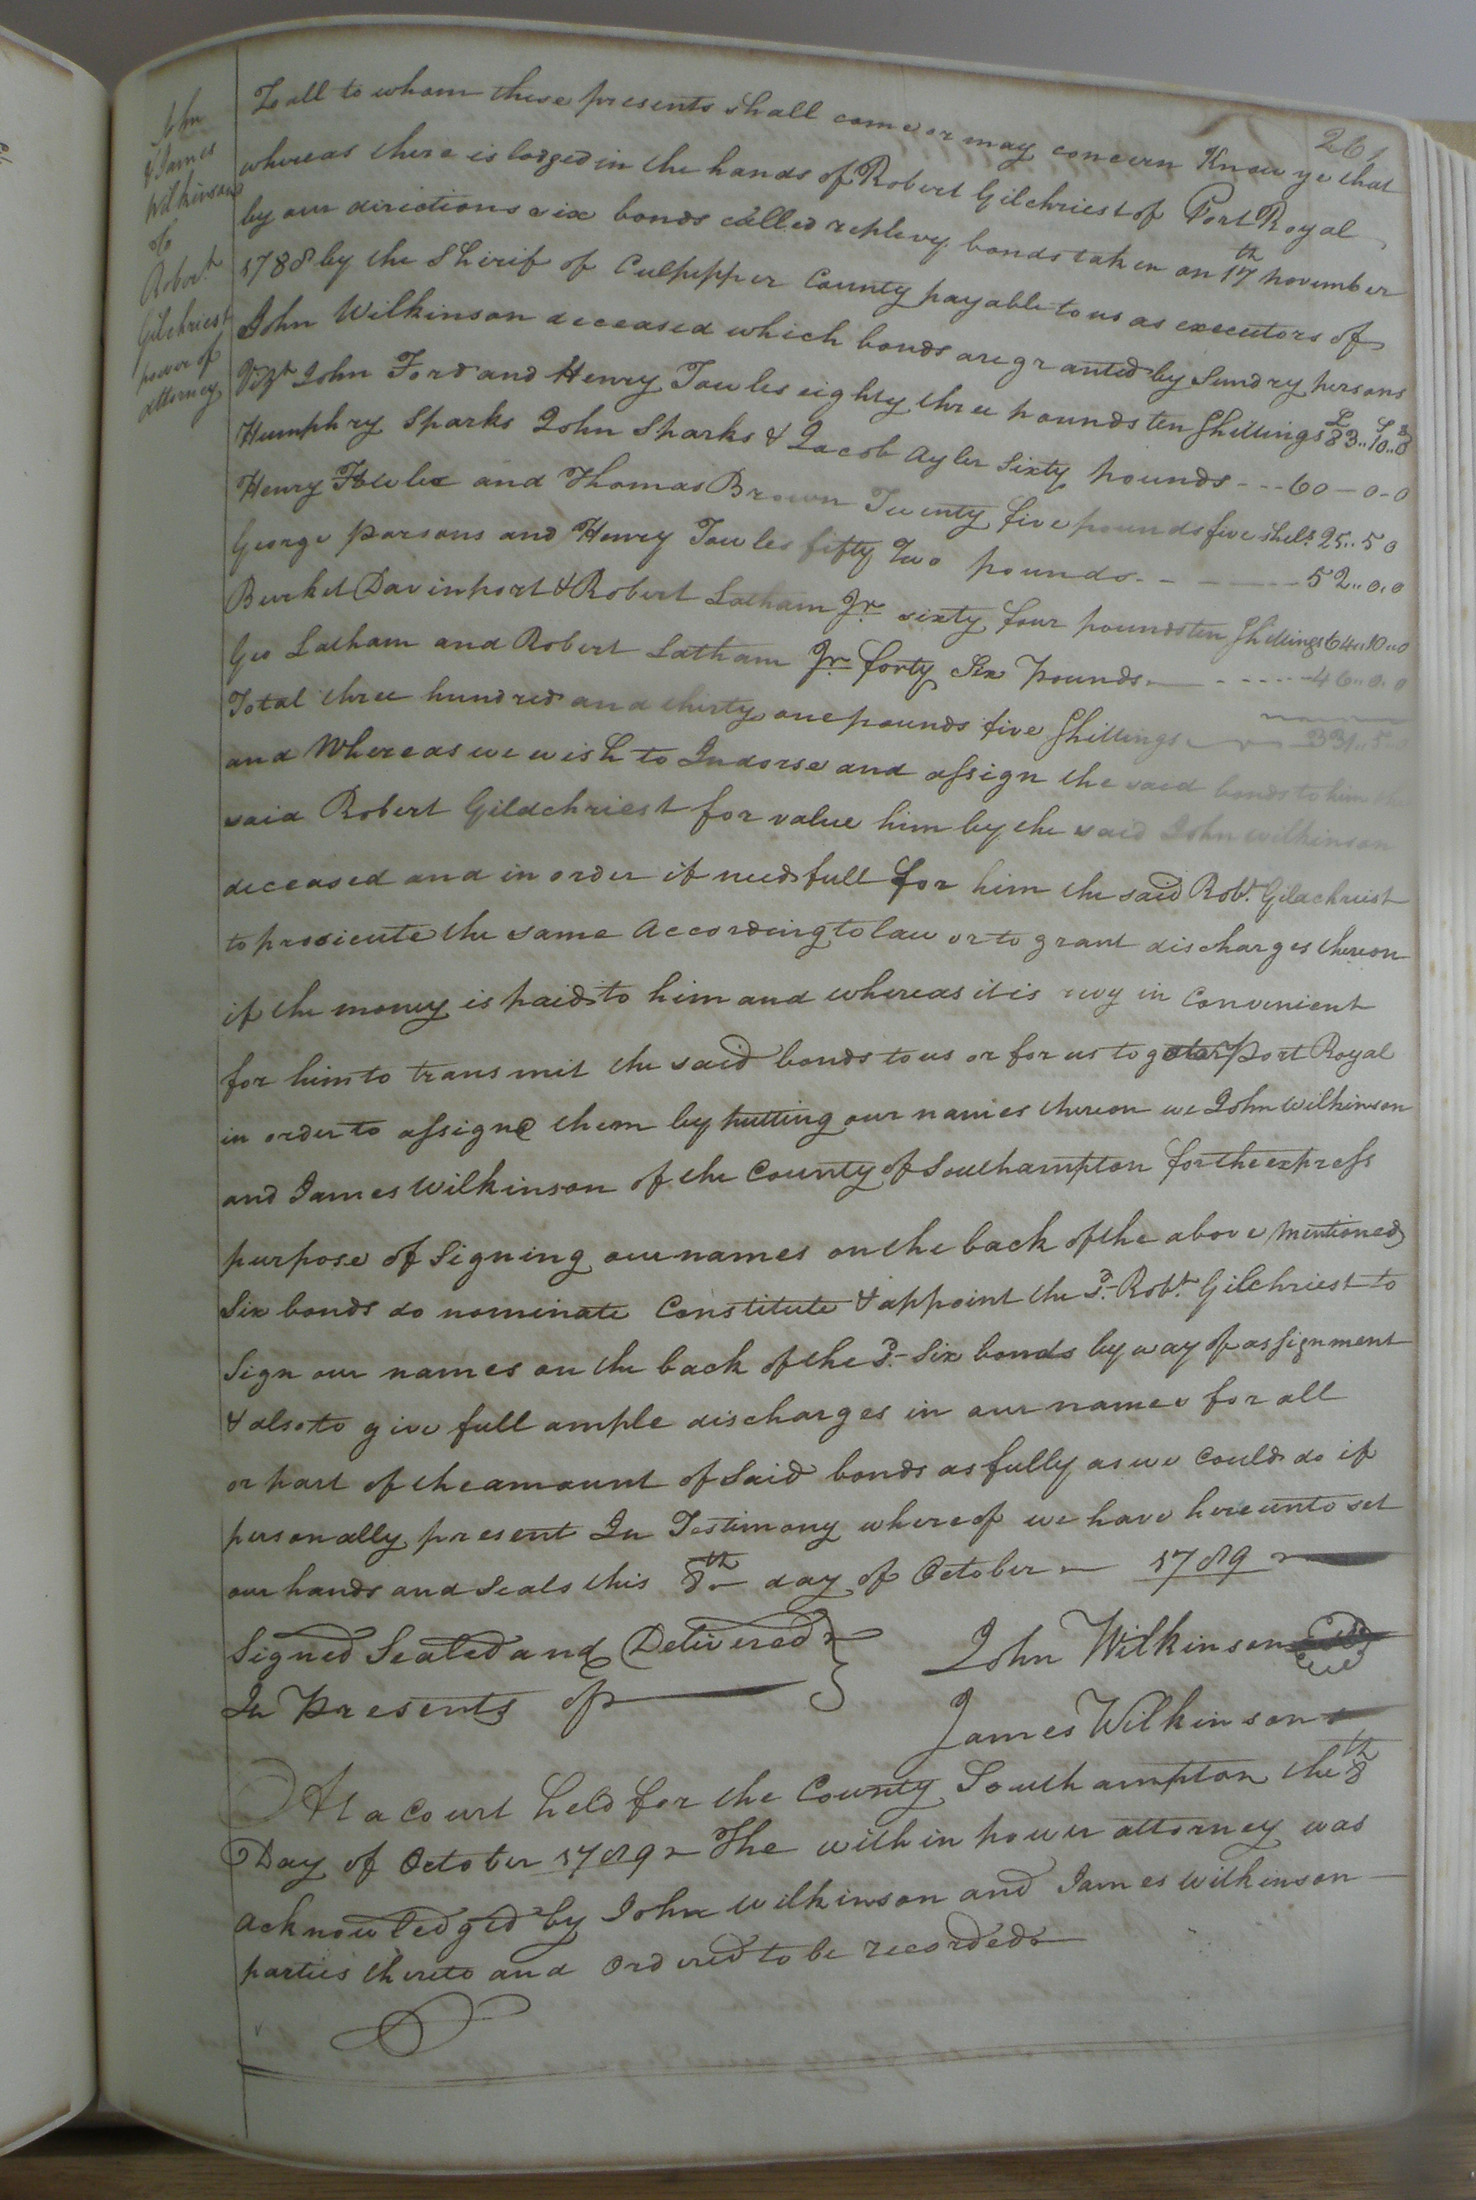 261
John
& James
Wilkinson
to
Robert
Gilchriest
power of
attorney
To all to whom these presents shall come or may concern Know ye that
whereas there is lodged in the hands of Robert Gilchriest of Port Royal
by our directions six bonds called replevy bonds taken on 17th november
1788 by the Shirif of Culpepper County payable to us as executors of
John Wilkinson deceased which bonds are granted by Sundry persons
Vizt John Ford and Henry Towles eighty three pounds ten Shillings £83..10..0
Humphry Sparks John Sparks & Jacob Ayler Sixty pounds - - - 60 - 0 - 0
Henry Towles and Thomas Brown Twenty five pounds five Shils 25..5 0
George Parsons and Henry Towles fifty Two pounds - - - - - 52..0.0
Burket Davinport & Robert Latham Jr sixty four pounds ten Shillings 64..10..0
Geo Latham and Robert Latham Jr forty Six Pounds - - - - - 46..0.0
Total three hundred and thirty one pounds five Shillings 331..5
and Whereas we wish to Indorse and assign the said bonds to him the
said Robert Gildchriest for value him by the said John Wilkinson
deceased and in order if needfull for him the said Robt. Gilachriest
to prosicute the same According to law or to grant discharges thereon
if the money is paid to him and whereas it is in convenient
for him to transmit the said bonds to us or for us to go to Port Royal
in order to assigne them by putting our names thereon we John Wilkinson
and James Wilkinson of the County of Southampton for the express
purpose of Signing our names on the back of the above mentioned
Six bonds do nominate Constitute & appoint the Sd. Robt. Gilchriest to
Sign our names on the back of the Sd. Six bonds by way of assignment
& also to give full ample discharges in our name for all
or part of the amount of Said bonds as fully as we Could do if
personally present In Testimony whereof we have hereunto set
our hands and Seals this 8th day of October 1789
Signed Sealed and Delivered }
In Presents of
John Wilkinson
James Wilkinson
At a Court held for the County Southampton the 8th
Day of October 1789 The within power attorney was
acknowledged by John Wilkinson and James Wilkinson
parties thereto and Ordered to be recorded